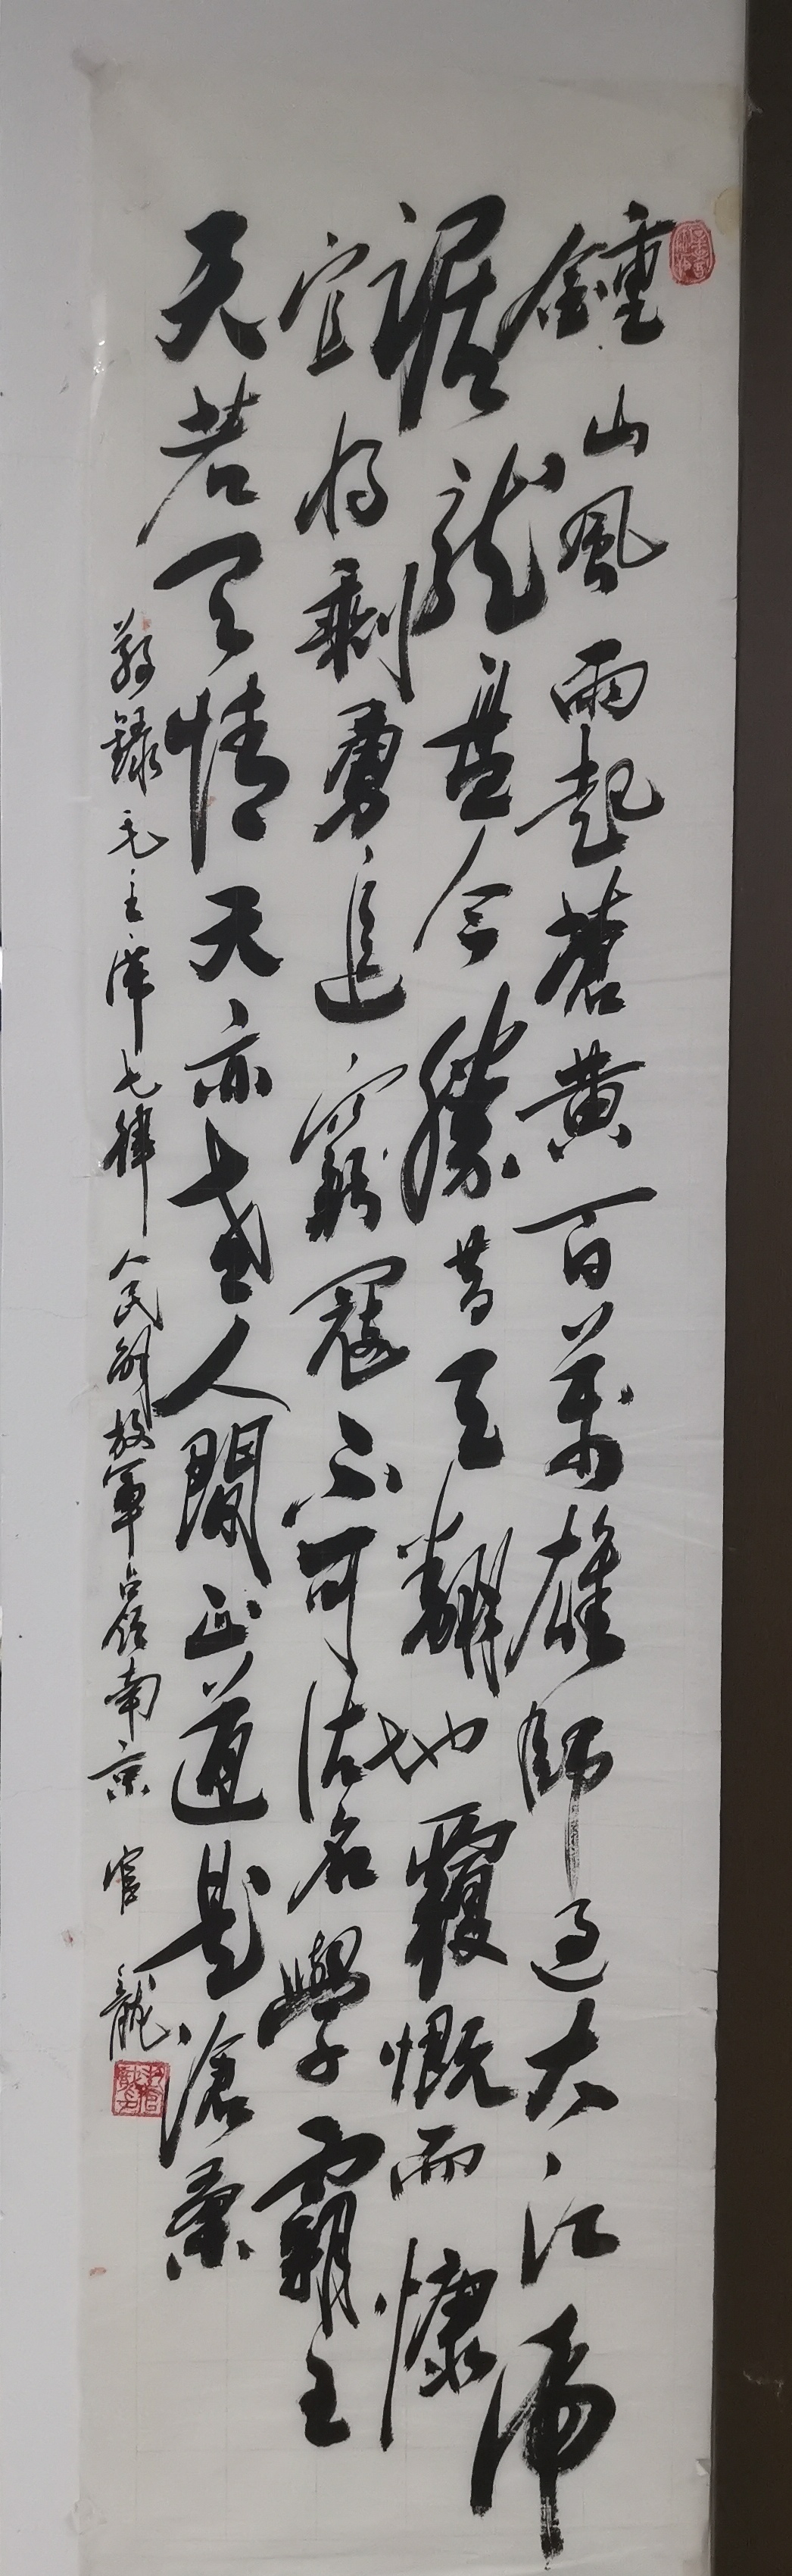 鍾山風雨起蒼黄百萬雄師過大江虎
踞龍盤今勝昔天翻地覆慨而慷
宜將剩勇追窮寇不可沽名學霸王
天若有情天亦老人間正道是滄桑
敬録毛主席七律人民解放軍占領南京 官龍